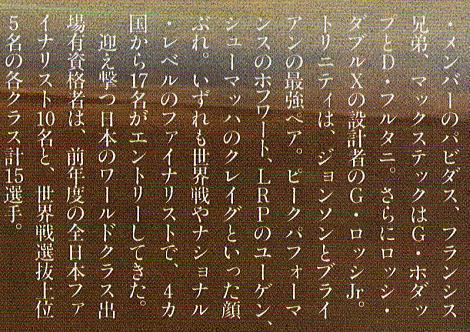 ・メンバーのパビダス、フランシス
兄弟、マックステックはG・ホダッ
プとD・フルタニ。さらにロッシ・
ダブルXの設計者のG・ロッシJr。
トリニティは、ジョンソンとブライ
アンの最強ペア。ピークパフォーマ
ンスのホフワート、LRPのユーゲン、
シューマッハのクレイグといった顔
ぶれ。いずれも世界戦やナショナル
・レベルのファイナリストで、4カ
国から17名がエントリーしてきた。
迎え撃つ日本のワールドクラス出
場有資格者は、前年度の全日本ファ
イナリスト10名と、世界戦選抜上位
5名の各クラス計15選手。